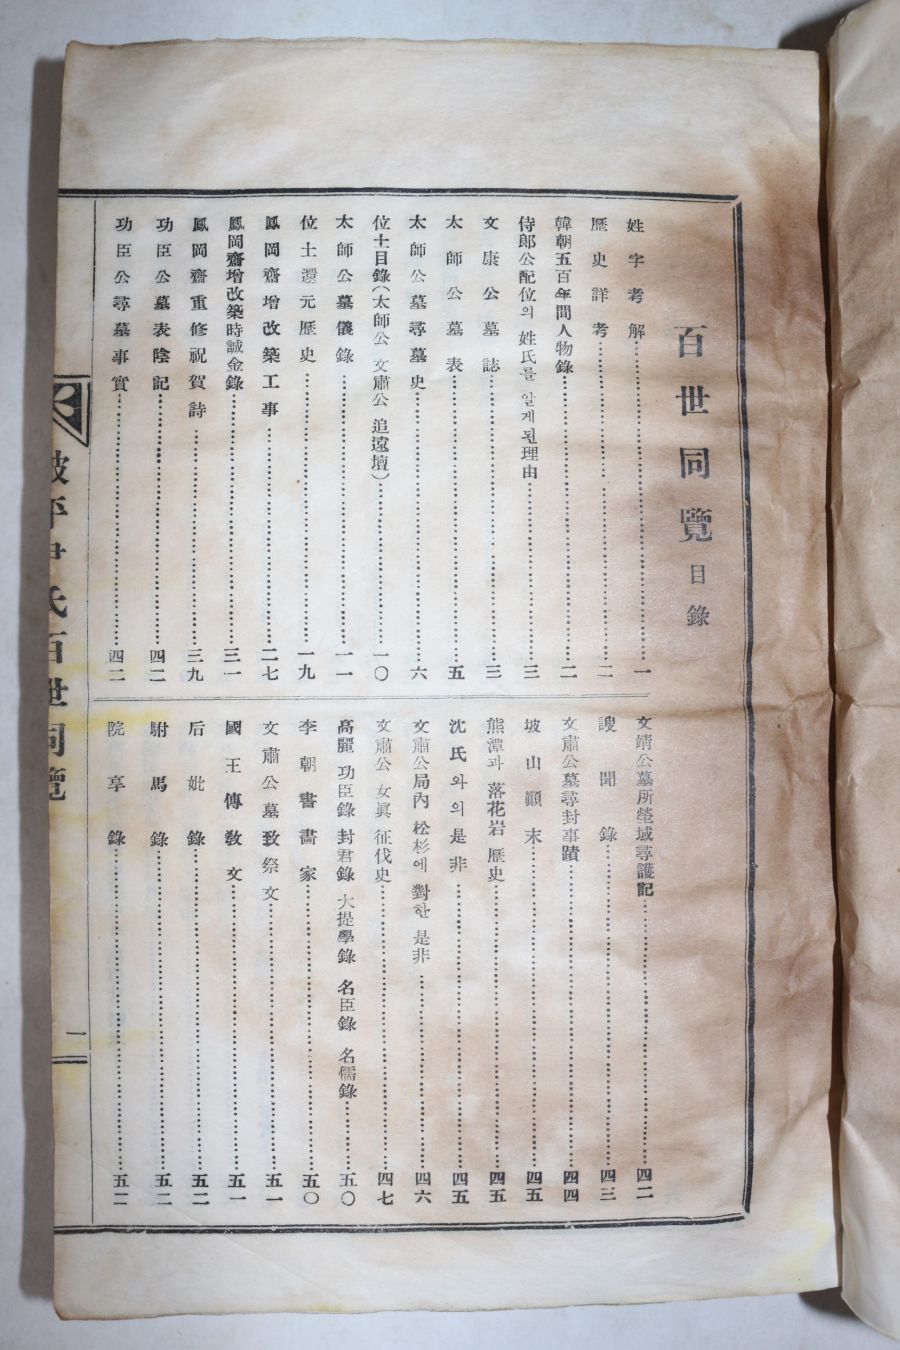 百世同覽 目錄
姓字考解 一
歷史詳考 二
韓朝五百年間人物錄 二
侍郎公配位의 姓氏를 알게된理由 三
文康公墓誌 三
太師公墓表 五
太師公墓尋墓史 六
位土目錄(太師公 文肅公 追遠壇) 一〇
太師公墓儀錄 一一
位土還元歷史 一九
鳳岡齋增改築工事 二七
鳳岡齋增改築時誠金錄 三一
鳳岡齋重修祝賀詩 三九
功臣公墓表陰記 四二
功臣公尋墓事實 四二
文靖公墓所塋域尋護記 四二
謏聞錄 四三
文肅公墓尋封事蹟 四四
坡山顚末 四五
熊潭과 落花岩 歷史 四五
沈氏와의是非 四五
文肅公局內 松杉에 對한 是非 四六
文肅公 女眞 征伐史 四七
高麗 功臣錄 封君錄 大提學錄 名臣錄 名儒錄 五〇
李朝書畵家 五〇
文肅公墓致祭文 五一
國王傳敎文 五一
后妣錄 五二
駙馬錄 五二
院享錄 五二
坡平尹氏百世同覽
一